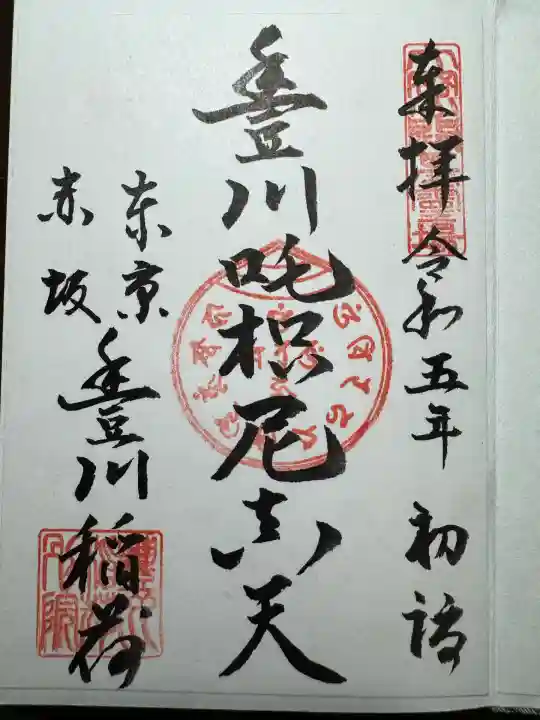 奉拝 令和五年 初詣
豊川吒枳尼真天
東京
赤坂
豊川稲荷